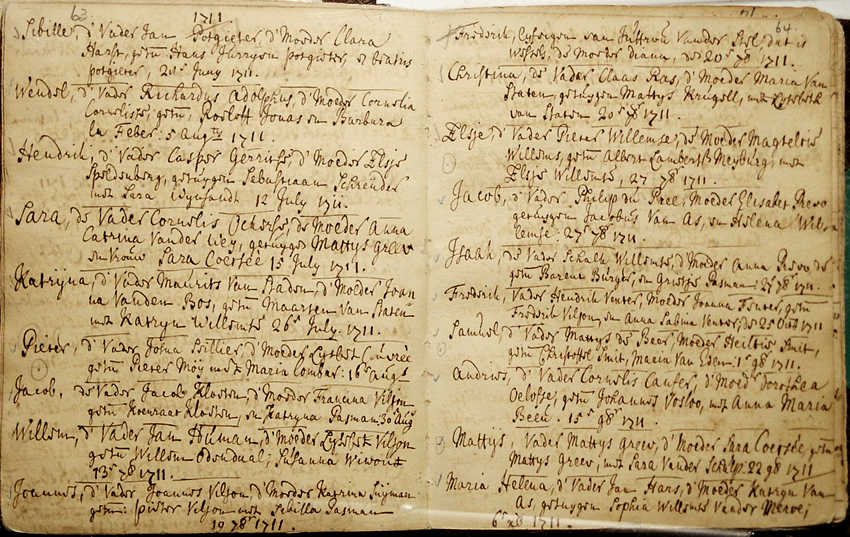 63
1711
Sibille, d'Vader Jan Potgieter, d'Moeder Clara
Harst, getu Hans Jurrgen potgieter, en Beatrix
potgieter, 21 Juny 1711.
Wendel, d'Vader Richardus Adolphus, d'Moeder Cornelia
Cornelisse, getu, Roeloff Jonas en Barbara
la Feber: 5 Aug 1711.
Hendrik, d'Vader Casper Gerritse, d'Moeder Elsje
Speldenberg, getuygen Sebastiaan Schreuder
met Sara Wynsandt 12 July 1711.
Sara, de Vader Cornelis, de Moeder Anna
Catrina Vander Wey, getuyge Mattys Greev
en Vrouw Sara Coersée 15 July 1711.
Katrijna, d'Vader Maurits Van Staden, d'Moeder Joan
na Vanden Bos, getu Maarten Van Staten
met Katryn Willemse 26 July. 1711.
Pieter, d'Vader Josua Sellier, d'Moeder Lysbet Couvrée
getu Pieter Moy met Maria Lombar: 16 Aug
Jacob, de Vader Jacob Kloeten, d'Moeder Francina Viljon
getu Koenraat Kloeten, en Katryna Pasman 30 Aug
Willem, d'Vader Jan Human, d'Moeder Lysbet Viljon
getu Willem Odendaal, Susanna Wiwout
13 7b 1711.
Joannes, d'Vader Joannes Viljon, d'Moeder Katrina Snyman
getu: Pieter Viljon met Sibilla Pasman
19 7b 1711.
64
Frederik, Lyfeigen van Juffrou Vander Stel, dat is
de Moeder Diana, de 20 7b 1711.
Christina, de Vader Claas Ras, d'Moeder Maria Van
Staten, getuygen Mattys Krugell, met Lysebet
van Staten 20 7b 1711.
Elsje, d'Vader Pieter Willemse, de Moeder Magtelt
Willems, getu Albert Lambertsz Meyburg, met
Elsje Willems, 27 7b 1711.
Jacob, d'Vader Philip du Pree, Moeder Elisabet Prevo
getuygen Jacobus Van As, en Helena Wilsen
27 7b 1711.
Isaak, de Vader Schalk Willemse, d'Moeder Anna Prevo, de
getu Barend Burger, en Grietje Pasman: 27 7b 1711
Frederik, Vader Hendrik Venter, Moeder Joanna, getu
Frederik Viljon, en Anna Sabina Venter, de 25 Oct 1711
Samuel, d'Vader Mattys de Beer, Moeder Hilletie Smit,
getu Christoffel Smit, Maria Van Eden: 1 9b 1711.
Andries, d'Vader Cornelis Caufer, d'Moed Dorothea
Oelofse, getu Johannes Vosloo, met Anna Maria
Been. 15 9b 1711.
Mattys, Vader Mattys Greev, d'Moeder Sara Coersée, getu
Mattys Greev, met Sara Vander Schulp: 22 9b 1711
Maria Helena, d'Vader Jan Hans, d'Moeder Katryn Van
As, getuygen Sophia Willemse Vander Merve,
1711.